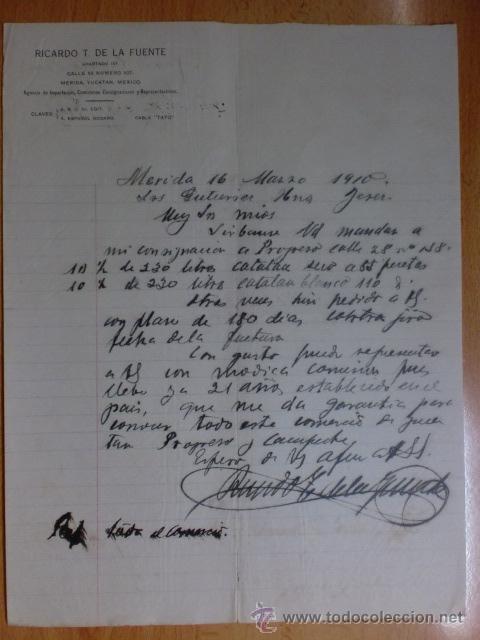 RICARDO T. DE LA FUENTE
APARTADO 157
MERIDA, YUCATAN, MEXICO.
Agencia de Importación, Comisiones Consignaciones y Representaciones.
CLAVES A. B. C. 5a. EDIT.
A. ESPAÑOL CABLE "TATO"
Merida 16 Marzo 1910.
Srs Gutierrez Hno Jerez
Muy Srs mios
Sirbanse Vd mandar a
mi consignacion a Progreso calle 28 nº 158
10 1/2 de 220 litros catalan seco a 85 pesetas
10 1/2 de 220 litros catalan blanco 110
Otra veces hize pedido a VS
con plaso de 180 dias contra giro
fecha de la factura
Con gusto puedo representar
a VS con modica comision pues
llebo ya 21 años establecido en el
pais, que me da garantia para
conocer todo este comercio de Yuca
tan Progreso y Campeche
Espero de Vs
Ricardo T. de la Fuente
todo el comercio.
© www.todocoleccion.net